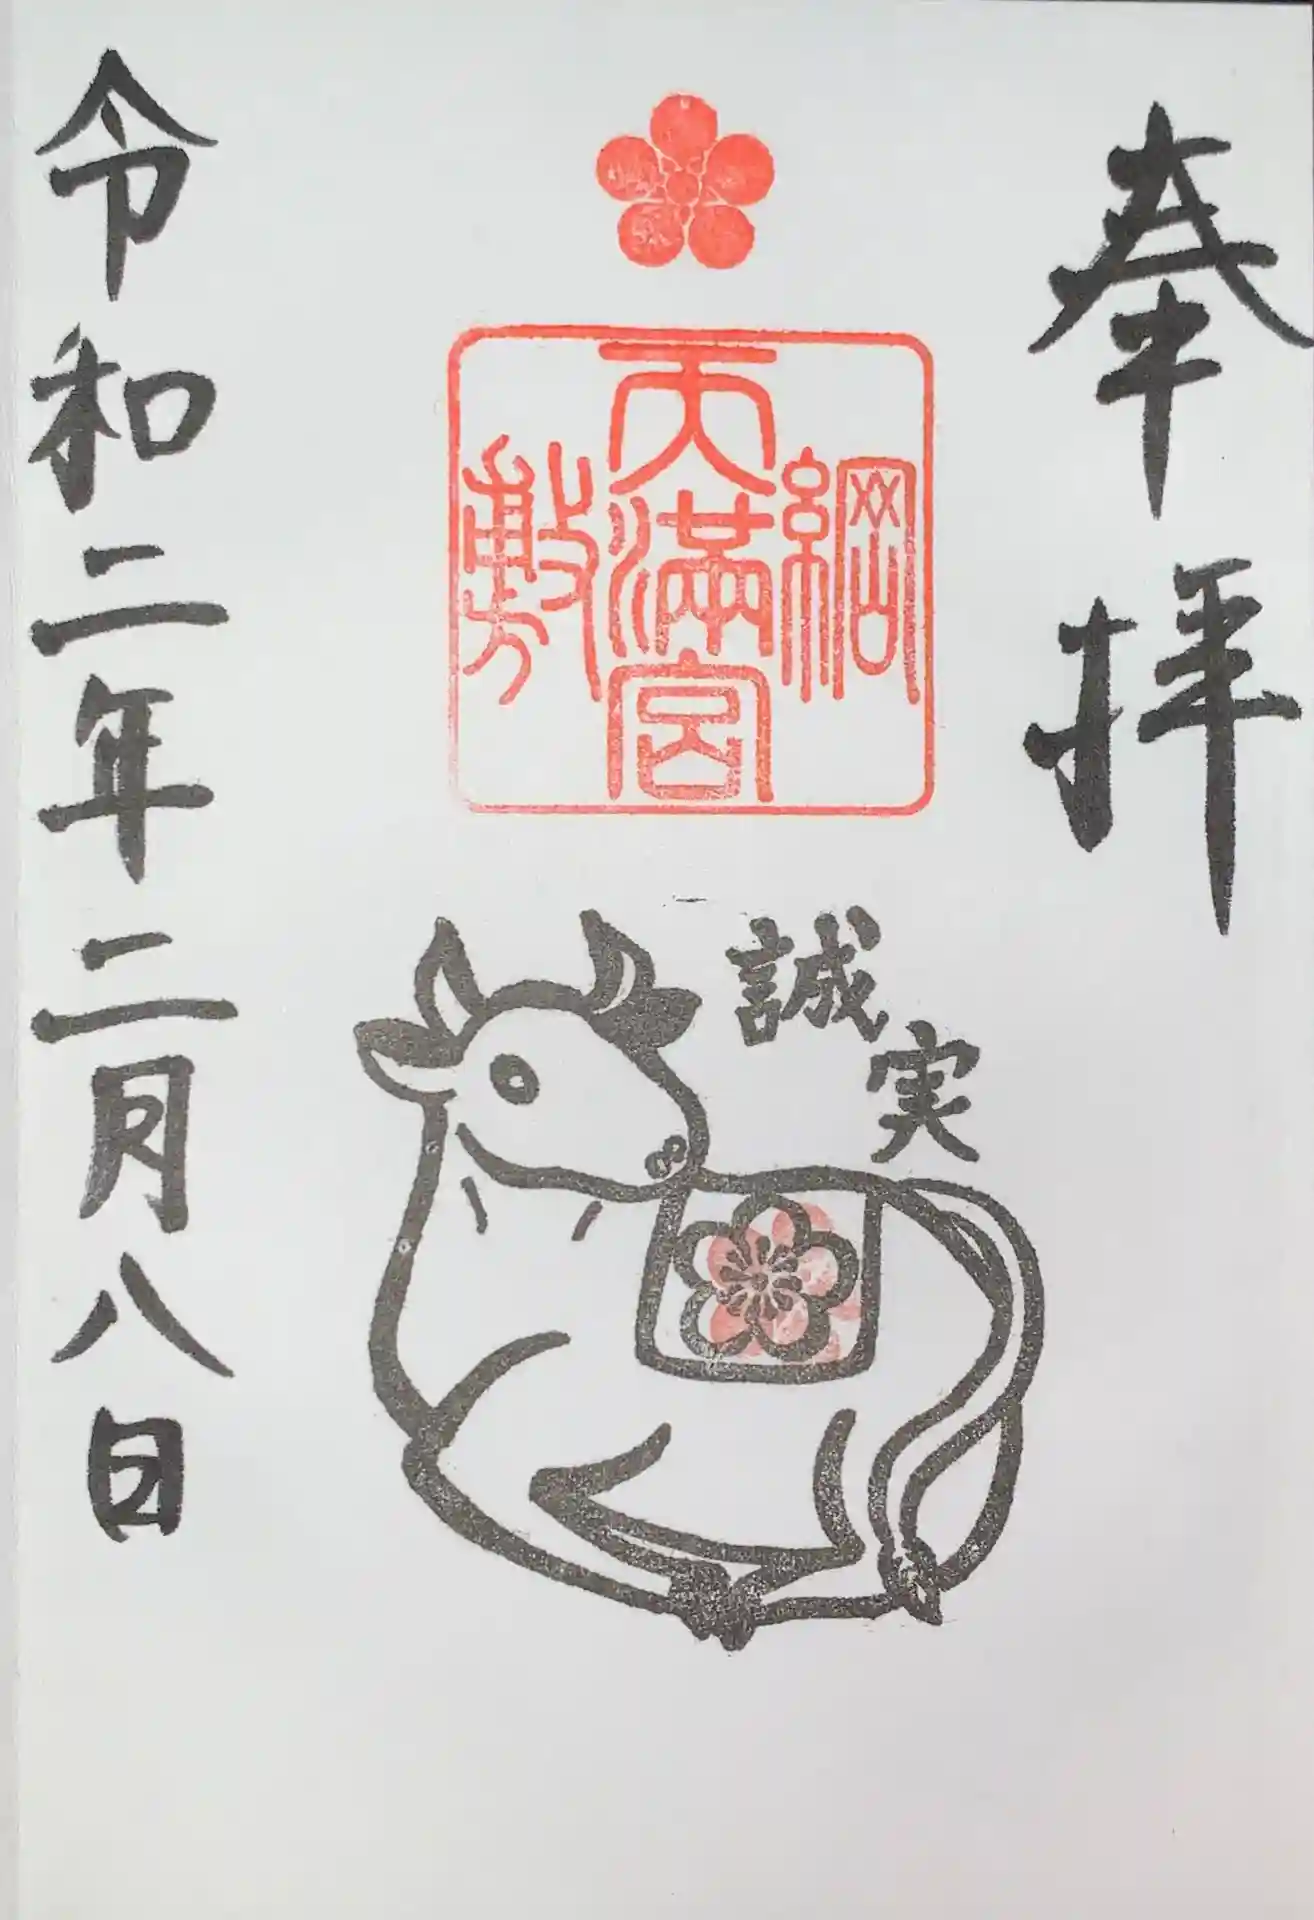 奉拝
綱敷
天満宮
誠実
令和二年二月八日